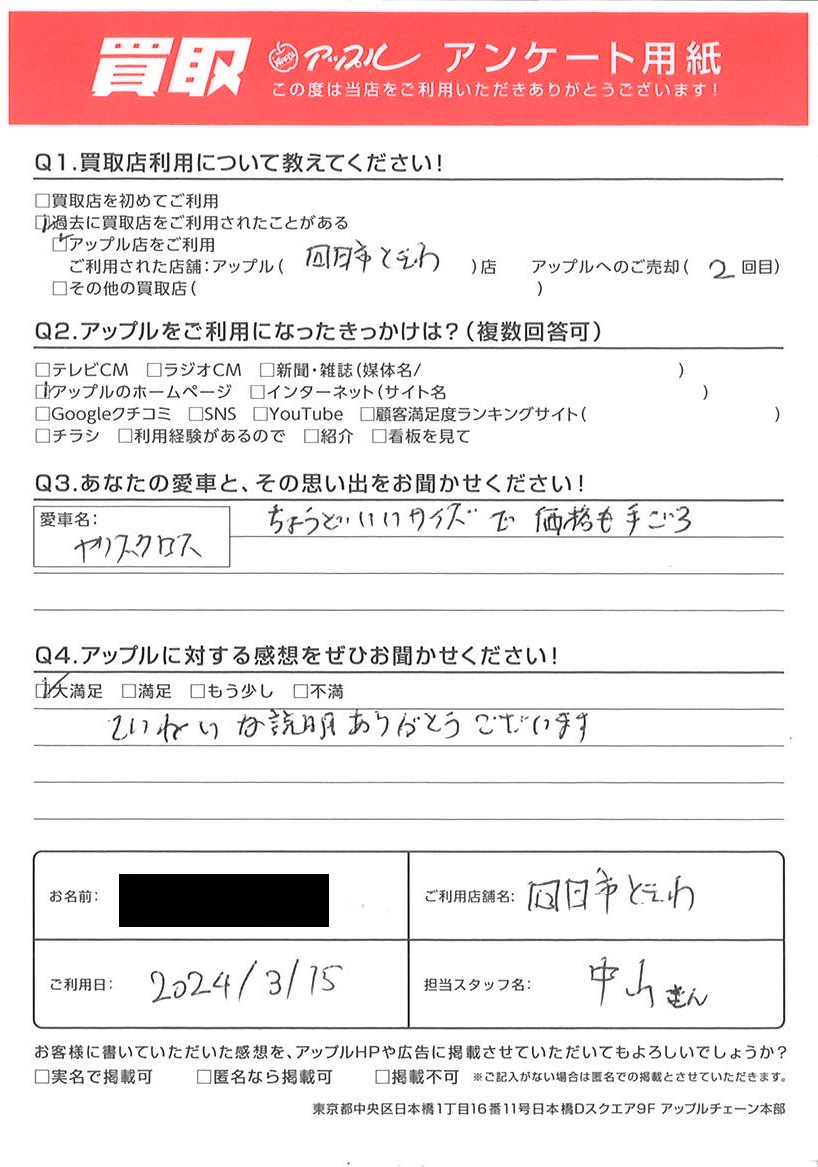 買取 アップル アンケート用紙
この度は当店をご利用いただきありがとうございます!
Q1.買取店利用について教えてください!
□買取店を初めてご利用
☑過去に買取店をご利用されたことがある
☑アップル店をご利用
ご利用された店舗:アップル( 四日市ときわ )店 アップルへのご売却( 2 回目)
□その他の買取店( )
Q2.アップルをご利用になったきっかけは?(複数回答可)
□テレビCM □ラジオCM □新聞・雑誌(媒体名/ )
☑アップルのホームページ □インターネット(サイト名 )
□Googleクチコミ □SNS □YouTube □顧客満足度ランキングサイト( )
□チラシ □利用経験があるので □紹介 □看板を見て
Q3.あなたの愛車と、その思い出をお聞かせください!
愛車名:
ヤリスクロス
ちょうどいいサイズで 価格も手ごろ
Q4.アップルに対する感想をぜひお聞かせください!
☑大満足 □満足 □もう少し □不満
ていねいな説明ありがとうございます
お名前: ご利用店舗名: 四日市ときわ
ご利用日: 2024/3/15 担当スタッフ名: 中山さん
お客様に書いていただいた感想を、アップルHPや広告に掲載させていただいてもよろしいでしょうか?
□実名で掲載可 □匿名なら掲載可 □掲載不可 ※ご記入がない場合は匿名での掲載とさせていただきます。
東京都中央区日本橋1丁目16番11号日本橋Dスクエア9F アップルチェーン本部